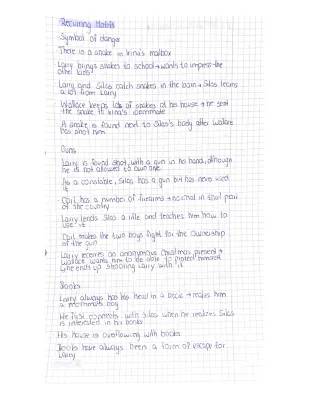 Recurring Motifs
Symbol of danger
There is a snake in Irina's mailbox
Larry brings snakes to school → wants to impress the
other kids
Larry and Silas catch snakes in the barn → Silas learns
a lot from Larry
Wallace keeps lots of snakes at his house → he sent
the snake to Irina's roommate
A snake is found next to Silas's body after Wallace
has shot him
Guns
Larry is found shot, with a gun in his hand, although
he is not allowed to own one
As a constable, Silas has a gun but has never used
it
Carl has a number of firearms → normal in that part
of the country
Larry lends Silas a rifle and teaches him how to
use it
Carl makes the two boys fight for the ownership
of the gun
Larry receives an anonymous Christmas present →
Wallace wants him to be able to protect himself
he ends up shooting Larry with it
Books
Larry always has his head in a book → makes him
a
boy
He first
with Silas when he realizes Silas
is interested in his books
His house is overflowing with books
Books have always been a form of escape for
Larry